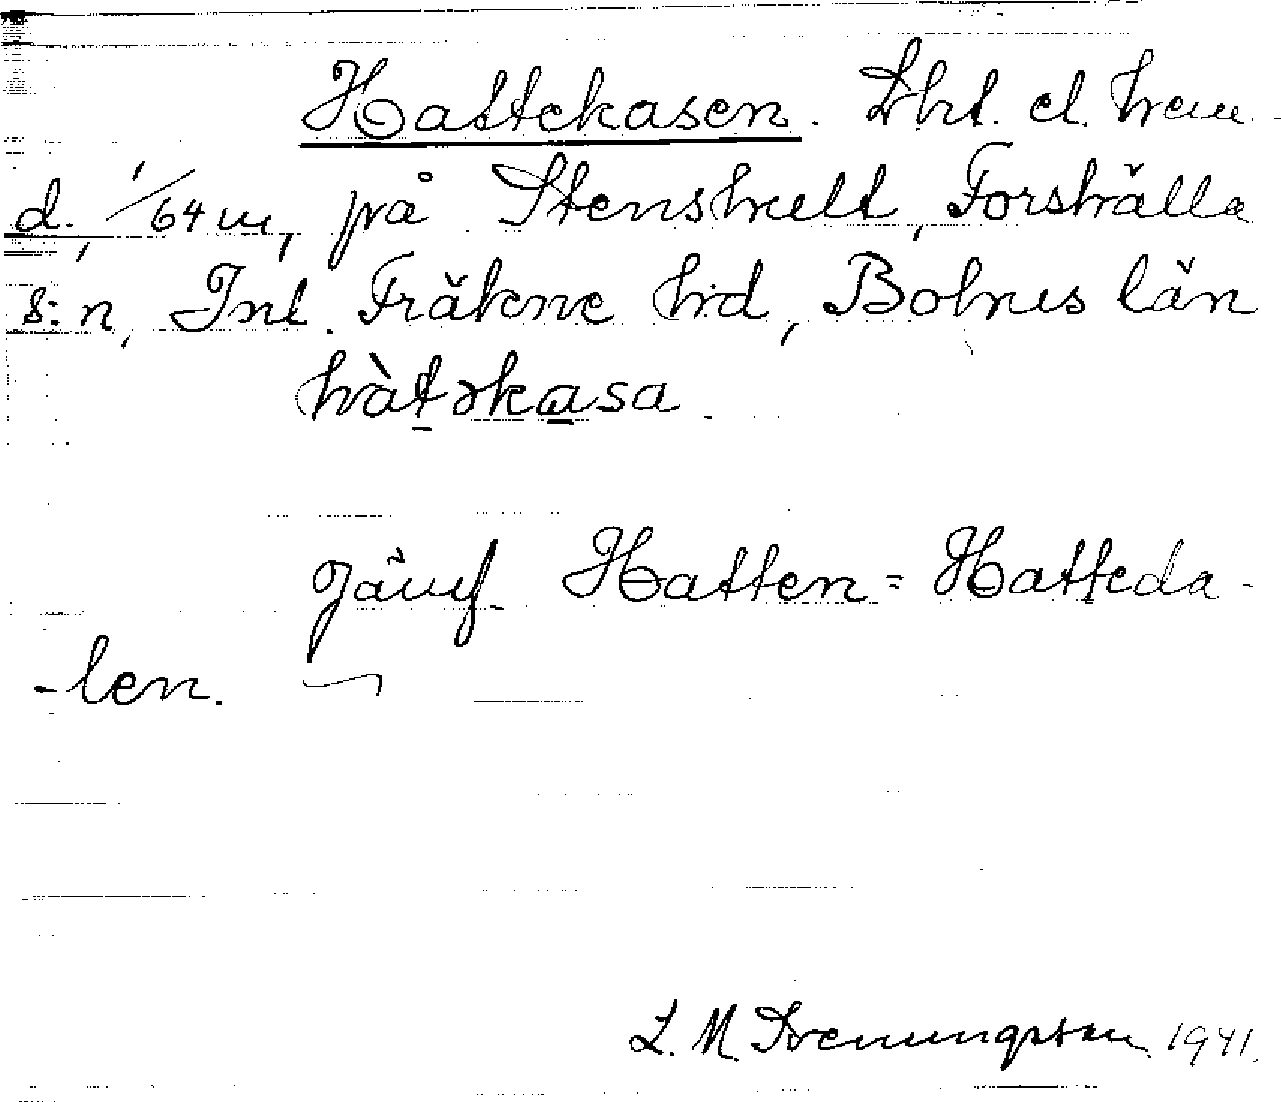 Hattekasen. Lht. el. hem-
d., 1/64 m, på Stenshult, Forshälla
s:n, Inl. Fräkne hd, Bohus län
hàtəkasa
Jämf. Hatten = Hatteda-
-len.
L. M. Svenungsson 1941.